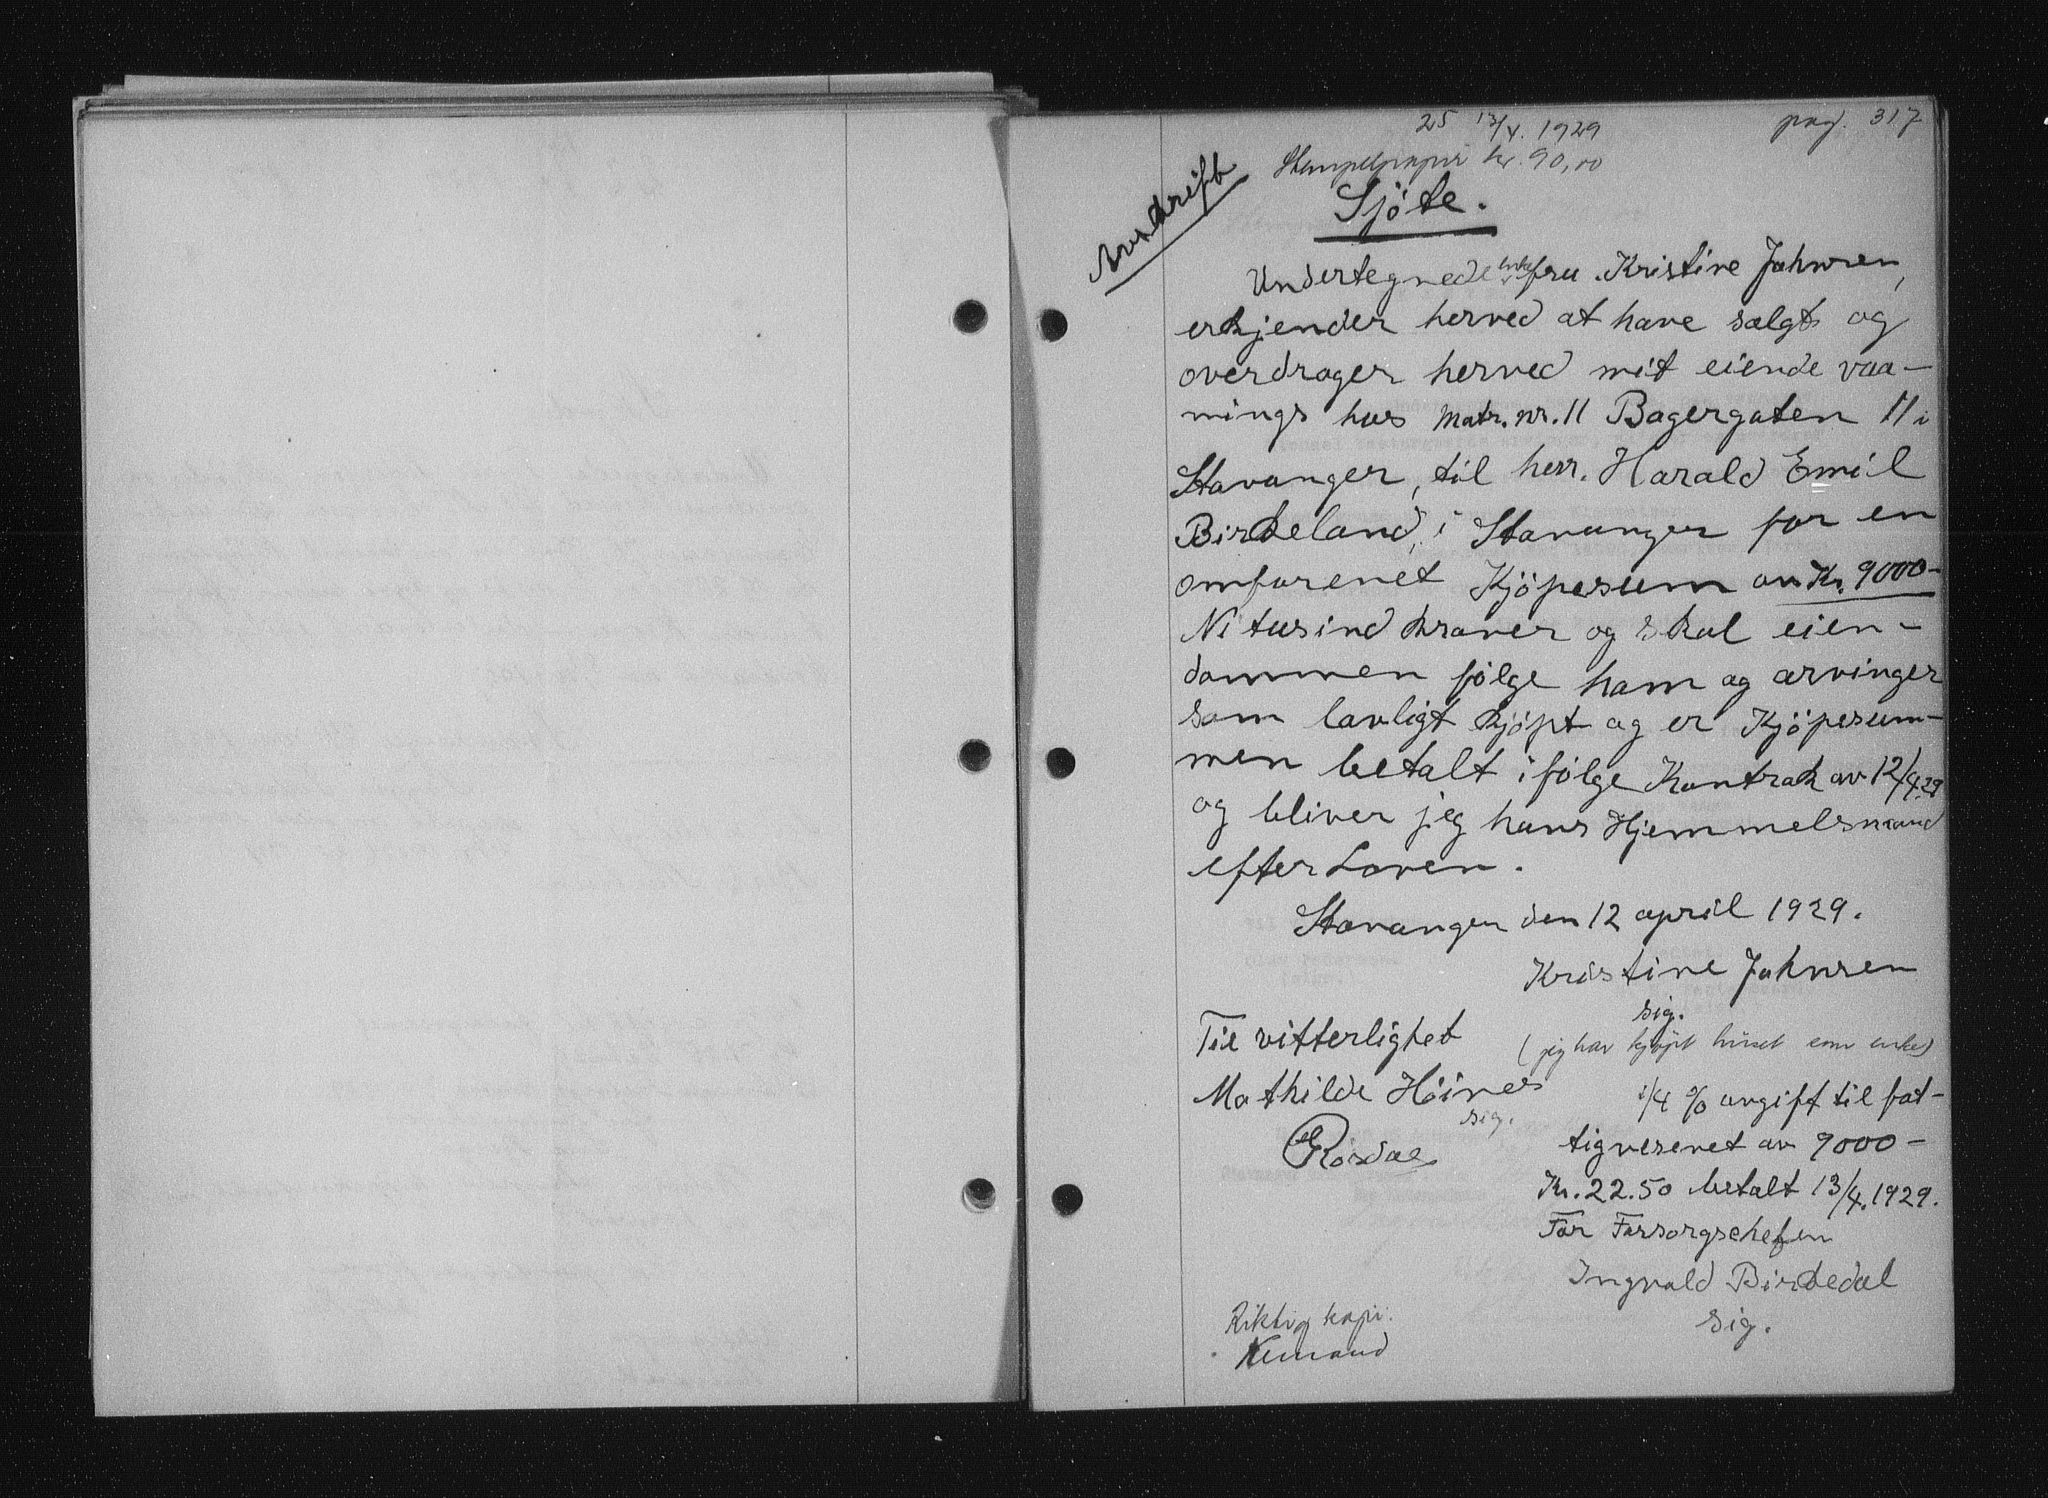 25 13/4. 1929
pag. 317
Stempelpapir kr. 90,00
Avskrift
Sjöte.
Undertegnede enke fru Kristine Johnsen,
erkjender herved at have sælgt og
overdrager herved mit eiende vaa-
nings hus Matr. nr. 11 Bagergaten 11 i
Stavanger, til herr. Harald Emil
Birkeland, i Stavanger for en
omforenet Kjöpesum av Kr. 9000-
Ni tusind kroner og skal eien-
dommen følge ham og arvinger
som lovligt kjöpt og er Kjöpesum-
men betalt i følge Kontrak av 12/4.29
og bliver jeg hans Hjemmelsmand
efter Loven.
Stavanger den 12 april 1929.
Kristine Johnsen
sig.
Til vitterlighet
(jeg har kjöpt huset som enke)
Mathilde Höines
sig.
1/4 % avgift til fat-
Rosdal
tigvesenet av 9000-
Kr. 22.50 betalt 13/4. 1929.
For Forsorgschefen
Ingvald Birkedal
sig.
Riktig kopi: